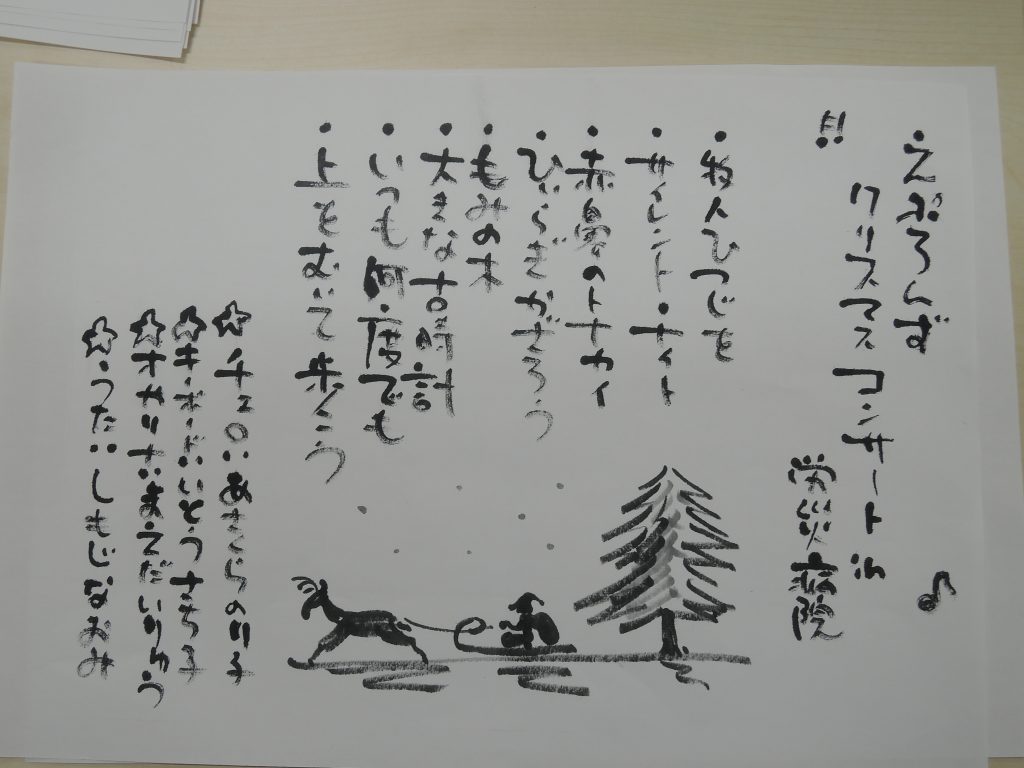 ・えぷろんず
クリスマスコンサート in
労災病院
・牧人ひつじを
・サイレント・ナイト
・赤鼻のトナカイ
・ひいらぎかざろう
・もみの木
・大きな古時計
・いつも何度でも
・上をむいて歩こう
☆チェロ:あきらのり子
☆キーボード:いとうさち子
☆オカリナ:まえだいりゅう
☆うた:しもじなおみ